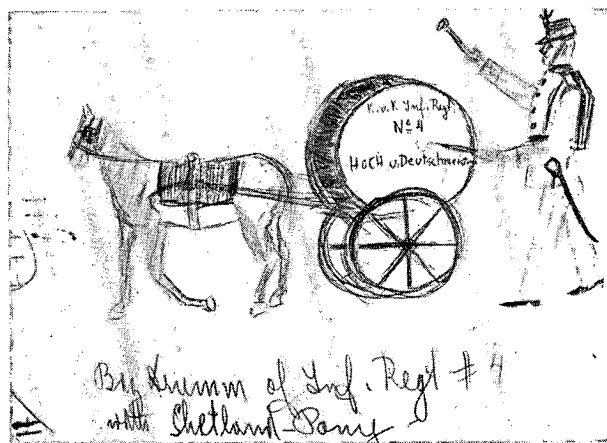 K.u.K Inf. Regt.
No 4
HOCH u. Deutschmeister
of Inf. Regt # 4
with Shetland-Pony